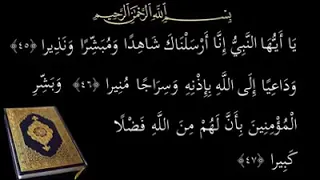 بِسْمِ اللَّهِ الرَّحْمَٰنِ الرَّحِيمِ
يَا أَيُّهَا النَّبِيُّ إِنَّا أَرْسَلْنَاكَ شَاهِدًا وَمُبَشِّرًا وَنَذِيرا ﴿٤٥﴾
وَدَاعِيًا إِلَى اللَّهِ بِإِذْنِهِ وَسِرَاجًا مُنِيرا ﴿٤٦﴾ وَبَشِّرِ
الْمُؤْمِنِينَ بِأَنَّ لَهُمْ مِنَ اللَّهِ فَضْلًا
كَبِيرا ﴿٤٧﴾